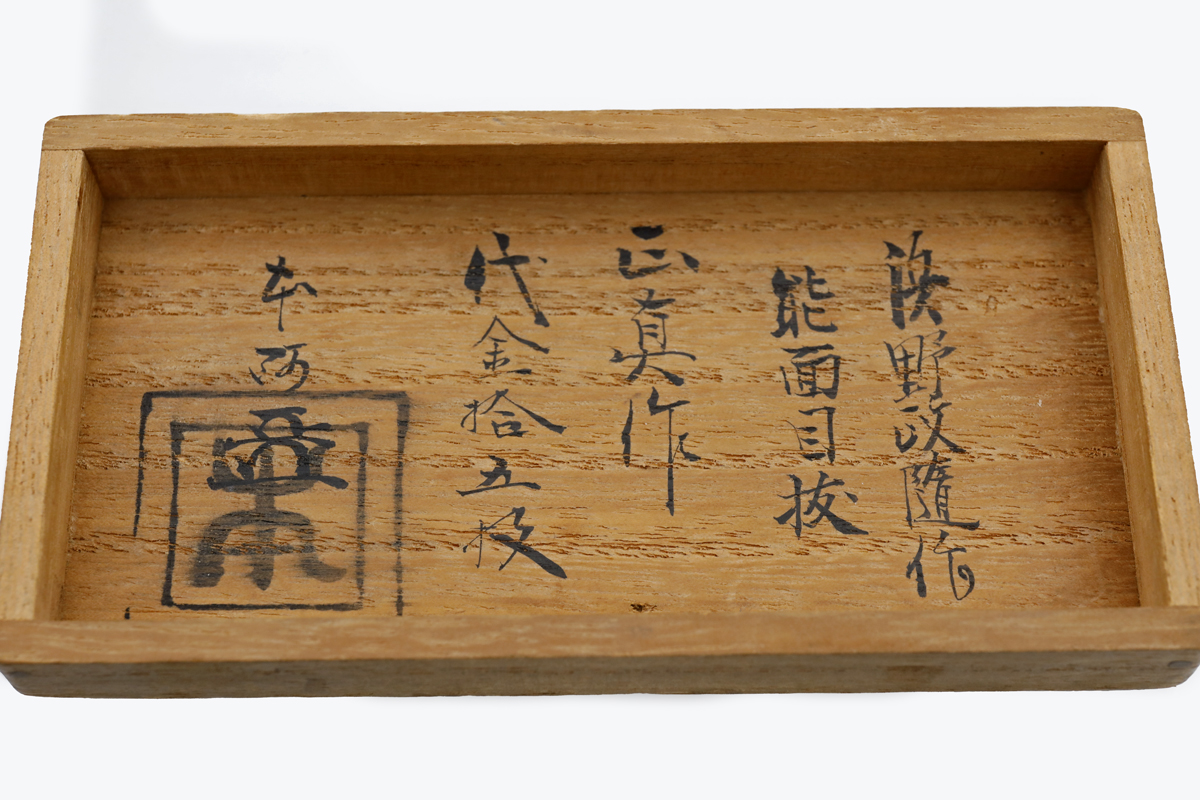 濱野政隨作
能面目抜
正真作
代金拾五枚
本阿弥